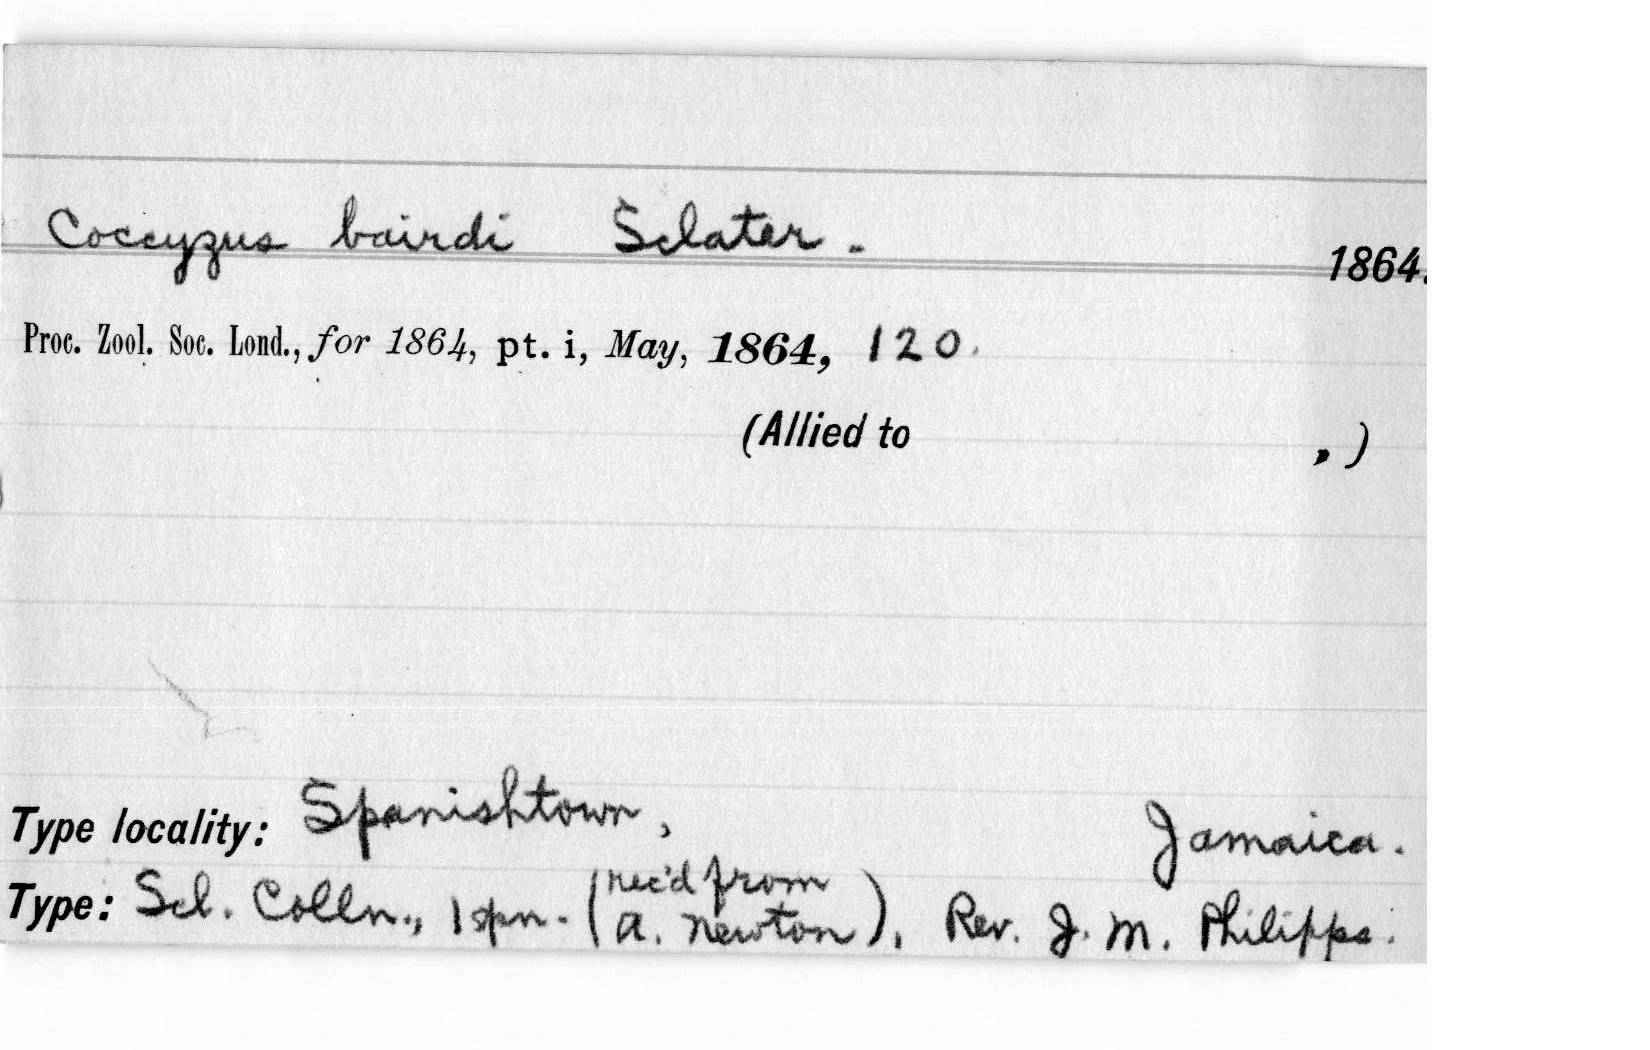 Coccyzus bairdi Sclater.
1864.
Proc. Zool. Soc. Lond., for 1864, pt. i, May, 1864, 120.
(Allied to , )
Type locality: Spanishtown, Jamaica.
Type: Scl. Colln., 1 spn. (rec'd from A. Newton), Rev. J. M. Philipps.